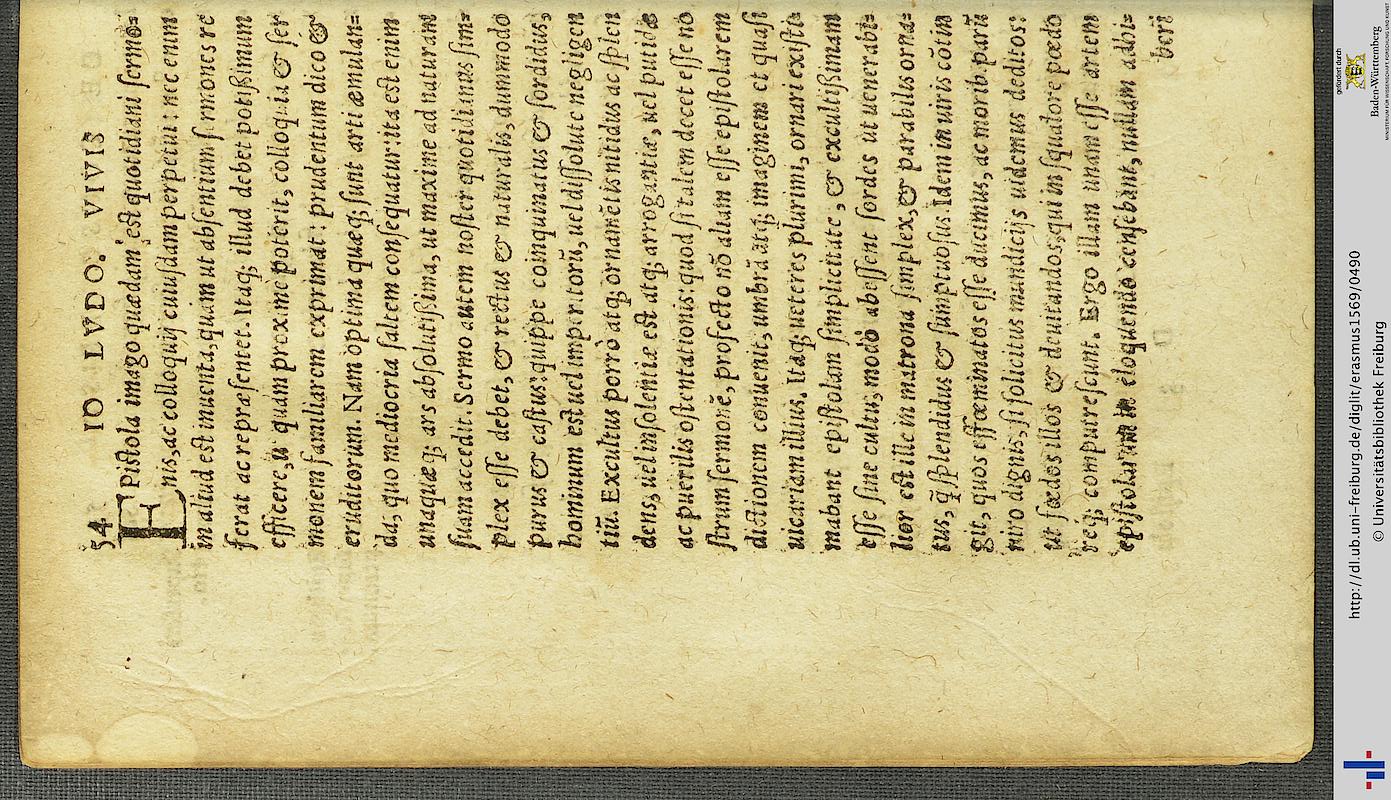 54 IO LVDO. VIVIS
EPistola imago quædam est quotidiani sermo=
nis, ac colloquij cuiusdam perpetui: nec enim
in aliud est inuenta, quàm ut absentium sermones re
ferat ac repræsentet. Itaq; illud debet potißimum
efficere, ut quam proxime poterit, colloquia & ser
monem familiarem exprimat: prudentum dico &
eruditorum. Nam optima quæq; sunt arti æmulan=
da, quo mediocria saltem consequatur: ita est enim
unaquæq; ars absolutißima, ut maxime ad naturam
suam accedit. Sermo autem noster quotidianus sim=
plex esse debet, & rectus & naturalis, dummodo
purus & castus: quippe coinquinatus & sordidus,
hominum est uel imperitorũ, uel dissolute negligen
tiũ. Excultus porrò atq; ornamẽtis nitidus ac splen
dens, uel insolentiæ est atq; arrogantiæ, uel putidæ
ac puerilis ostentationis: quod si talem decet esse no
strum sermonẽ, profecto nõ aliam esse epistolarem
dictionem conuenit, umbrã atq; imaginem et quasi
uicariam illius. Itaq; ueteres plurimi, ornari existi=
mabant epistolam simplicitate, & excultißimam
esse sine cultu, modò abessent sordes ut uenerabi=
lior est ille in matrona simplex, & parabilis orna=
tus, q̃ splendidus & sumptuosus. Idem in uiris cõtin
git, quos effœminatos esse ducimus, ac morib. parũ
uiro dignis, si solicitus munditijs uidemus deditos:
ut fœdos illos & deuitandos, qui in squalore pœdo
req; computrescunt. Ergo illam unam esse artem
epistolarum in eloquendo censebant, nullam adhi=
beri
http://dl.ub.uni-freiburg.de/diglit/erasmus1569/0490
© Universitätsbibliothek Freiburg
gefördert durch
Baden-Württemberg
MINISTERIUM FÜR WISSENSCHAFT, FORSCHUNG UND KUNST